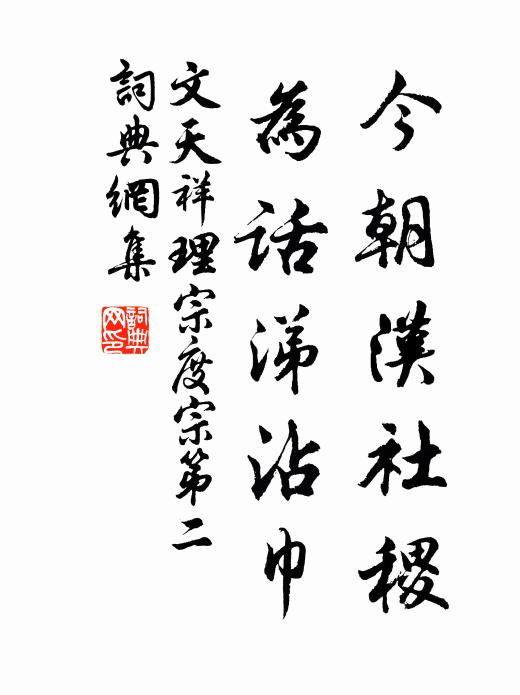 今朝漢社稷
為話涕沾巾
文天祥理宗度宗第二
詞典網集
詞典网印